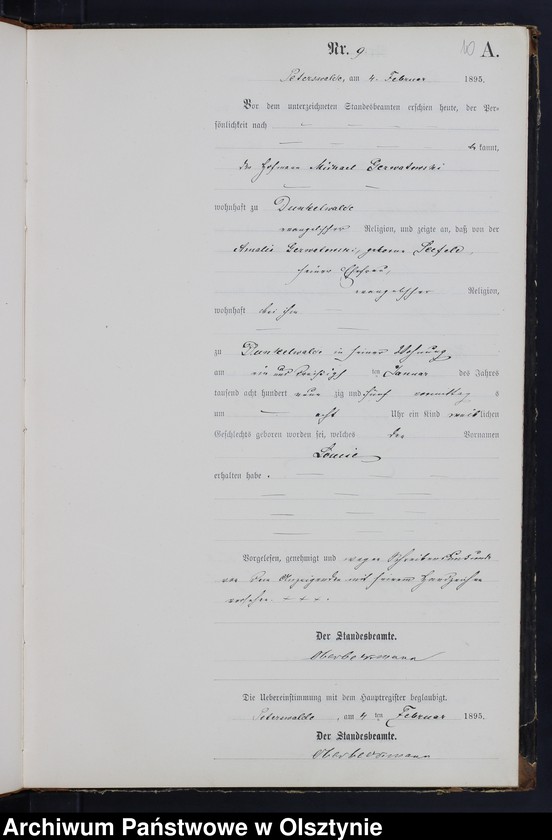 Nr. 9
10 A.
Peterswalde, am 4. Februar 1895.
Vor dem unterzeichneten Standesbeamten erschien heute, der Per-
sönlichkeit nach
kannt,
der Michael Gerwatowski
wohnhaft zu Dunkelwalde
evangelischer Religion, und zeigte an, daß von der
Amalie Gerwatowski, geborne Seefeld,
seiner Ehefrau,
evangelischer Religion,
wohnhaft bei ihm
zu Dunkelwalde in seiner Wohnung
am ein und dreißigsten Januar des Jahres
tausend acht hundert neun zig und fünf vormittags
um acht Uhr ein Kind weiblichen
Geschlechts geboren worden sei, welches den Vornamen
Louise
erhalten habe.
Vorgelesen, genehmigt und wegen Schreibensunkunde
von dem Anzeigenden mit seinem Handzeichen
versehen. + + +.
Der Standesbeamte.
Die Uebereinstimmung mit dem Hauptregister beglaubigt.
Peterswalde, am 4 ten Februar 1895.
Der Standesbeamte.
Archiwum Państwowe w Olsztynie